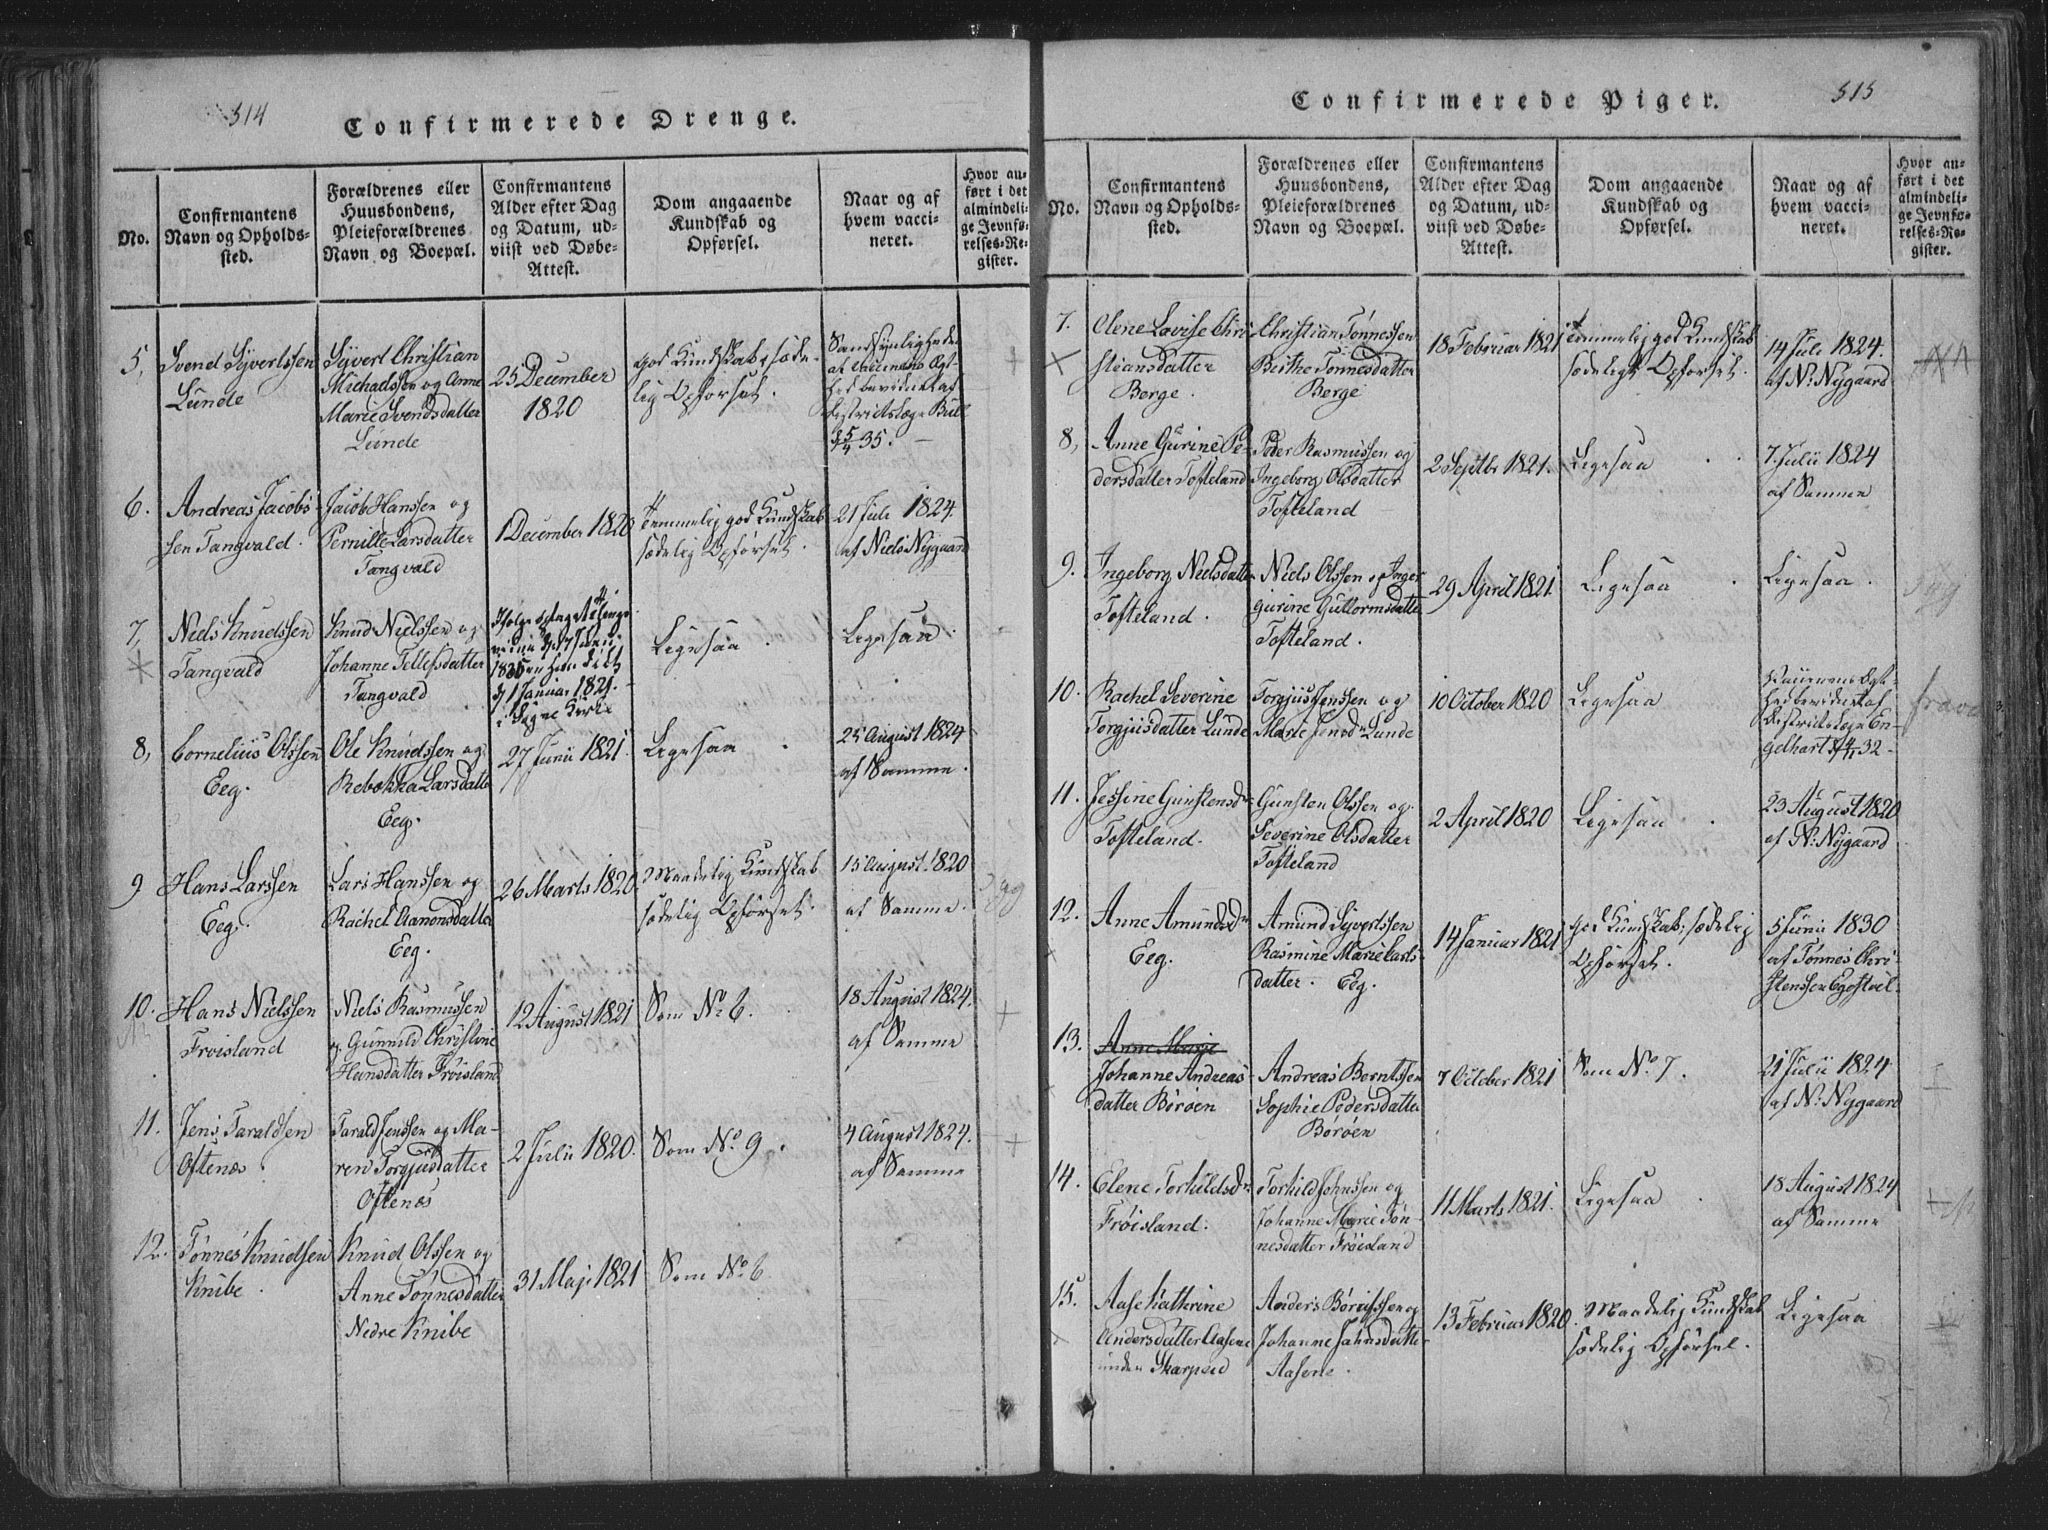 514
Confirmerede Drenge.
No.
Confirmantens
Navn og Opholds-
sted.
Forældrenes eller
Huusbondens,
Pleieforældrenes
Navn og Boepæl.
Confirmantens
Alder efter Dag
og Datum, ud-
viist ved Døbe-
Attest.
Dom angaaende
Kundskab og
Opførsel.
Naar og af
hvem vacci-
neret.
Hvor an-
ført i det
almindeli-
ge Jevnfø-
relses-Re-
gister.
5,
Svend Syvertssen
Lunde
Syvert Christian
Michaelssen og Anne
Marie Svendsdatter
Lunde
25 December
1820
god Kundskab, sæde-
lig Opførsel.
af
Districtslæge Bull
35.
6.
Andreas Jacobs-
sen Tangvald.
Jacob Hanssen og
Pernille Larsdatter
Tangvald
1 December 1820
Temmelig god Kundskab
sædelig Opførsel.
21 Juli 1824.
af Niels Nygaard
7,
Niels Knudssen
Tangvald
Knud Nielssen og
Johanne Tellefsdatter
Tangvald
1 Januar 1821.
i Søgne Kirke
Ligesaa
Ligesaa.
8,
Cornelius Olssen
Eeg.
Ole Knudssen og
Rebekka Larsdatter
Eeg.
27 Junii 1821.
Ligesaa
25 August 1824
af Samme.
9
Hans Larssen
Eeg.
Lars Hanssen og
Rachel Aanonsdatter
Eeg.
26 Marts 1820
Maadelig Kundskab
sædelig Opførsel.
15 August 1820
af Samme.
10.
Hans Nielssen
Frøisland
Niels Rasmussen
og Gunnild Christine
Hansdatter Frøisland
12 August 1821
Som No 6.
18 August 1824.
af Samme
11.
Jens Taraldsen
Oftenæs.
Tarald Jenssen og Ma-
ren Torgjusdatter
Oftenæs
2 Julii 1820.
Som No 9.
4 August 1824.
af Samme
12.
Tønnes Knudsen
Knibe.
Knud Olssen og
Anne Tønnesdatter
Nedre Knibe
31 Maji 1821
Som No 6.
515
Confirmerede Piger.
No.
Confirmantens
Navn og Opholds-
sted.
Forældrenes eller
Huusbondens,
Pleieforældrenes
Navn og Boepæl.
Confirmantens
Alder efter Dag
og Datum, ud-
viist ved Døbe-
Attest.
Dom angaaende
Kundskab og
Opførsel.
Naar og af
hvem vacci-
neret.
Hvor an-
ført i det
almindeli-
ge Jevnfø-
relses-Re-
gister.
7.
Olene Lovise Chri-
stiansdatter
Berge.
Christian Tønnessen
Berthe Tønnesdatter
Berge
18 Februar 1821
Temmelig god Kundskab
sædeligt Opførsel.
14 Juli 1824.
af N. Nygaard
8,
Anne Gurine Pe-
dersdatter Tofteland
Peder Rasmussen og
Ingeborg Olsdatter
Tofteland
2 Septbr 1821.
Ligesaa
7 Julii 1824
af Samme
9.
Ingeborg Nielsdatter
Tofteland.
Niels Olssen og Inger
gurine Guttormsdatter
Tofteland.
29 April 1821.
Ligesaa
Ligesaa.
10.
Rachel Severine
Torgjusdatter Lunde
Torgjus Jenssen og
Marie Jensdr Lunde
10 October 1820
Ligesaa
Districtslæge En-
gelhart 32.
11.
Jessine Gunstensdr
Tofteland.
Gunsten Olssen og
Severine Olsdatter
Tofteland
2 April 1820
Ligesaa
23 August 1820
af N. Nygaard
12.
Anne Amundsdr
Eeg.
Amund Syvertssen
Rasmine Marie Carls-
datter. Eeg.
14 Januar 1821
god Kundskab, sædelig
Opførsel.
5 Junii 1830
af Tønnes Chri-
stenssen
13.
Anne Marie
Johanne Andreas-
datter Børøen
Andreas Berntssen
Sophie Pedersdatter
Børøen
7 October 1821
Som No 7.
21 Julii 1824
af N. Nygaard
14.
Elene Torkildsdr
Frøisland.
Torkild Johnssen og
Johanne Marie Tøn-
nesdatter Frøisland
11 Marts 1821.
Ligesaa
18 August 1824
af Samme
15.
Aase Kathrine
Andersdatter Aasene
under Skarpeid
Anders Børufssen og
Johanne Jahnsdatter
Aasene.
13 Februar 1820.
Maadelig Kundskab
sædelig Opførsel.
Ligesaa